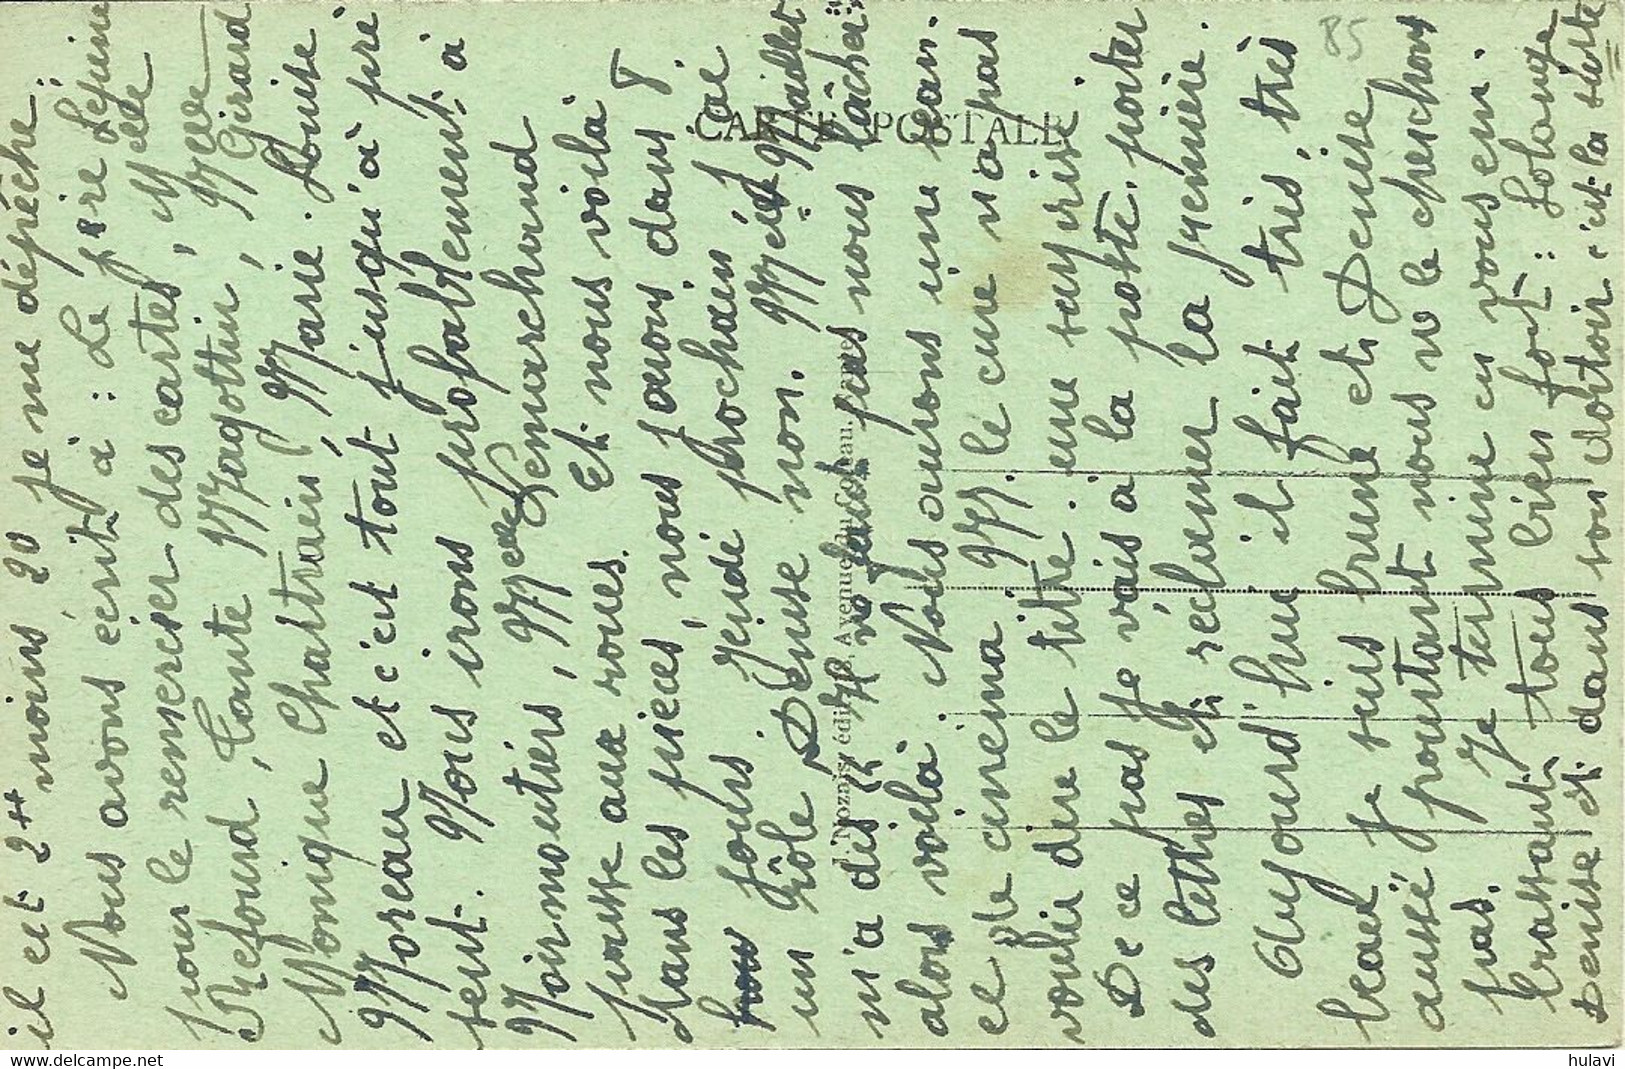 il est 2 H moins 20 je me dépêche.
Nous avons écrit à : Le père Lépine
pour le remercier des cartes, Melle
Refound, Tante Magottin, Mme Girard
Monique Chartrain, Marie Louise
Moreau et c'est tout jusqu'à pré
sent. Nous irons probablement à
Noirmoutiers, Melle Lemarchand
pousse aux roues. Et nous voilà
dans les pièces, nous jouons dans 8
jours. Jeudi prochain j'ai
un rôle Denise non. Melle Maillet
m'a dis "il ne faut pas nous lâcher"
alors voilà. Nous aurons une séan.
ce de cinéma M. le curé n'a pas
voulu dire le titre : une surprise
De ce pas je vais à la poste porter
des lettres et réclamer la première.
Aujourd'hui il fait très, très
beau je suis brune et Denise
aussi pourtant nous ne le cherchons
pas. Je termine en vous em.
brassant tous bien fort : Solange
Denise et dans son dortoir c'est la sieste
85
CARTE POSTALE
d. Nozais, édit., 8, Avenue Carnot, Nantes
hulavi